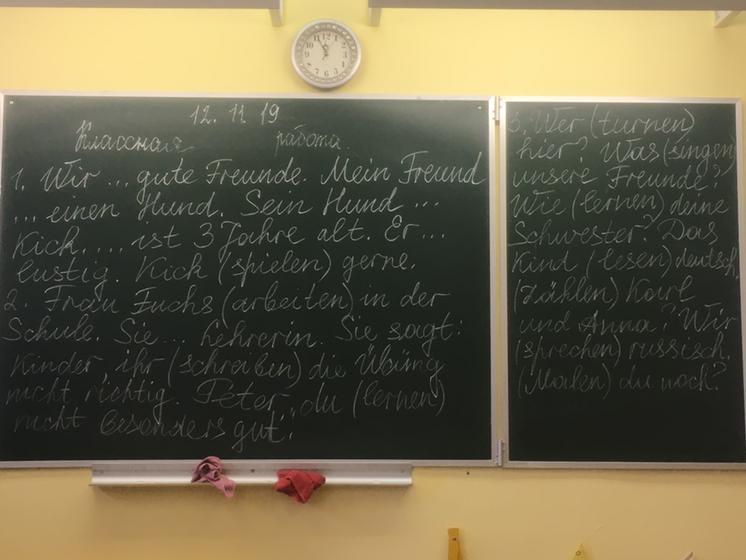 12. 11 19
Классная работа.
1. Wir ... gute Freunde. Mein Freund
... einen Hund. Sein Hund ...
Kick. ... ist 3 Jahre alt. Er ...
lustig. Kick (spielen) gerne.
2. Frau Fuchs (arbeiten) in der
Schule. Sie ... Lehrerin. Sie sagt:
Kinder, ihr (schreiben) die Übung
nicht richtig. Peter, du (lernen)
nicht besonders gut!
3. Wer (turnen)
hier? Was (singen)
unsere Freunde?
Wie (lernen) deine
Schwester? Das
Kind (lesen) deutsch.
(Zählen) Karl
und Anna? Wir
(sprechen) russisch.
(Malen) du noch?